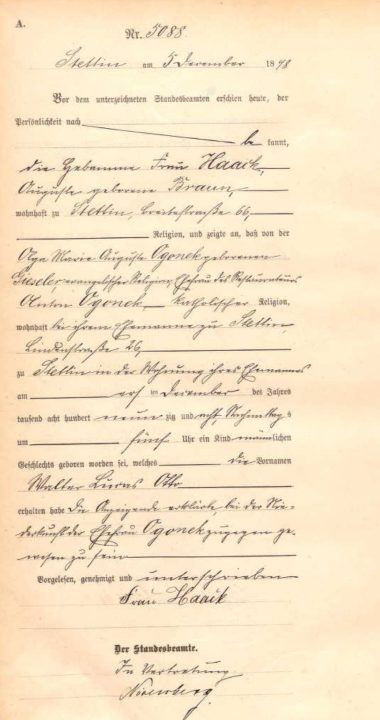 A.
Nr. 5088.
Stettin am 5 Dezember 1898
Vor dem unterzeichneten Standesbeamten erschien heute, der
Persönlichkeit nach
be kannt,
die Hebamme Frau Haack,
Auguste geborene Braun,
wohnhaft zu Stettin, Breitestraße 66,
Religion, und zeigte an, daß von der
Olga Marie Auguste Ogonek geborenen
Giseler evangelischer Religion, Ehefrau des Restaurateurs
Anton Ogonek katholischer Religion,
wohnhaft bei ihrem Ehemanne zu Stettin,
Lindenstraße 26,
zu Stettin in der Wohnung ihres Ehemannes
am ersten Dezember des Jahres
tausend acht hundert neun zig und acht, Nachmittags
um fünf Uhr ein Kind männlichen
Geschlechts geboren worden sei, welches die Vornamen
Walter Otto
erhalten habe Die Anzeigende erklärte, bei der Nie-
derkunft der Ehefrau Ogonek zugegen ge-
wesen zu sein
Vorgelesen, genehmigt und unterschrieben
Frau Haack
Der Standesbeamte.
In Vertretung